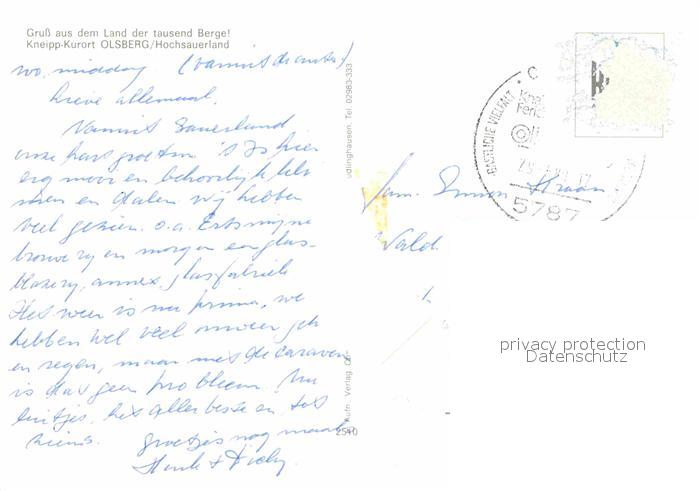 Gruß aus dem Land der tausend Berge!
Kneipp-Kurort OLSBERG/Hochsauerland
wo. middag (vanuit de
Lieve allemaal,
Vanuit Sauerland
onze hart. groeten. 't Is hier
erg mooi en behoorlijk
en dalen wij hebben
veel gezien. o.a. Ertsmijn
brouwerij en morgen een glas-
blazerij, annex glasfabriek
Het weer is nu prima, we
hebben wel veel onweer geh
en regen, maar met de caravan
is dat geen probleem. Nu
luitjes, het allerbeste en tot
ziens. groetjes nog maals
Henk + Dicky.
Udlinghausen. Tel. 02983-333
Aufn. Verlag
2540
GASTLICHE VIELFALT
5787
Fam. Simon
Wald
privacy protection
Datenschutz